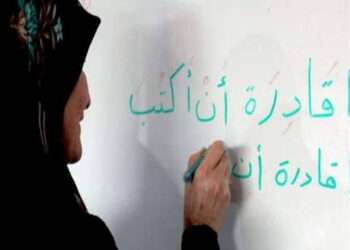 قَادِرَة أَنْ أكتب
قادرة أن